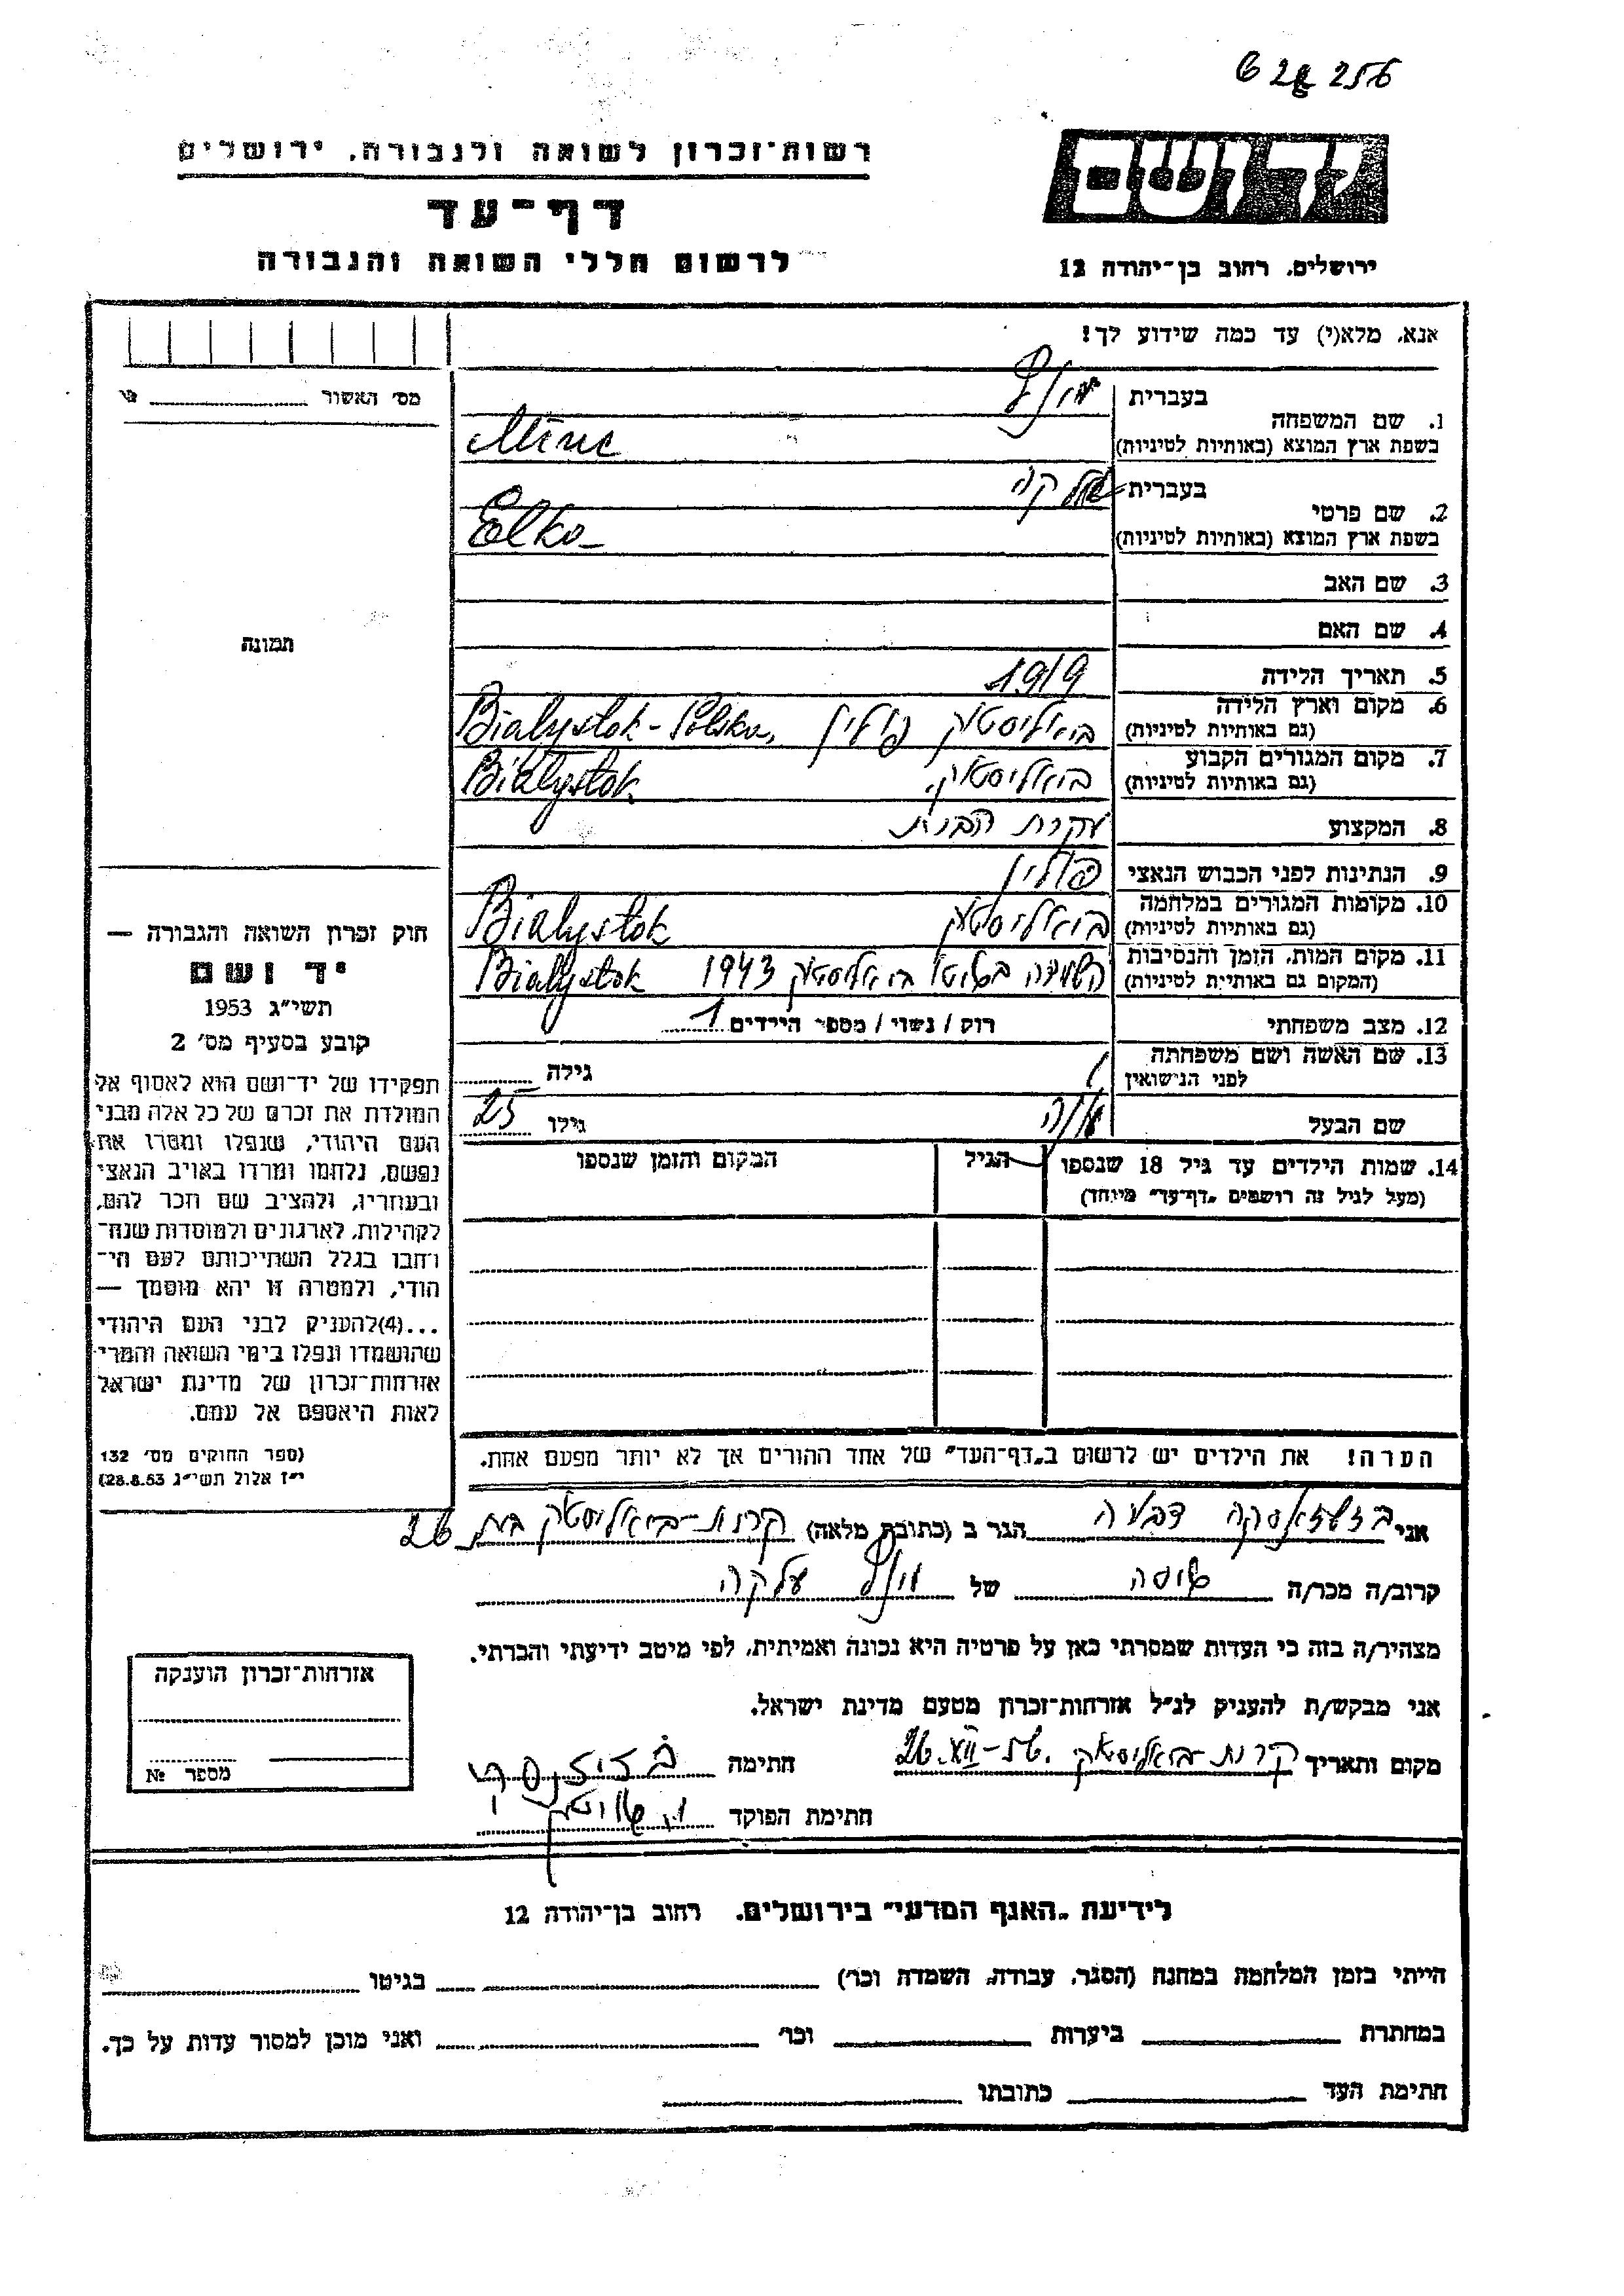 6 28 256
רשות־זכרון לשואה ולגבורה, ירושלים
דף־עד
לרשום חללי השואה והגבורה
יד ושם
ירושלים, רחוב בן־יהודה 12
אנא, מלא(י) עד כמה שידוע לך!
מס׳ האשור
1. שם המשפחה
בעברית
בשפת ארץ המוצא (באותיות לטיניות) Minc
2. שם פרטי
בעברית
בשפת ארץ המוצא (באותיות לטיניות) Elka
3. שם האב
4. שם האם
תמונה
5. תאריך הלידה 1919
6. מקום וארץ הלידה
(גם באותיות לטיניות) ביאליסטוק פולין Bialystok - Polska,
7. מקום המגורים הקבוע
(גם באותיות לטיניות) ביאליסטוק. Bialystok
8. המקצוע עקרת הבית
9. הנתינות לפני הכבוש הנאצי פולין
10. מקומות המגורים במלחמה
(גם באותיות לטיניות) ביאליסטוק Bialystok
11. מקום המות, הזמן והנסיבות
(המקום גם באותיות לטיניות) ביאליסטוק 1943 Bialystok
12. מצב משפחתי רוק / נשוי / מספר הילדים 1
13. שם האשה ושם משפחתה
לפני הנישואין גילה
שם הבעל גילו 25
14. שמות הילדים עד גיל 18 שנספו הגיל המקום והזמן שנספו
(מעל לגיל זה רושמים „דף־עד״ מיוחד)
הערה! את הילדים יש לרשום ב„דף־העד״ של אחד ההורים אך לא יותר מפעם אחת.
חוק זכרון השואה והגבורה —
יד ושם
תשי״ג 1953
קובע בסעיף מס׳ 2
תפקידו של יד־ושם הוא לאסוף אל
המולדת את זכרם של כל אלה מבני
העם היהודי, שנפלו ומסרו את
נפשם, נלחמו ומרדו באויב הנאצי
ובעוזריו, ולהציב שם וזכר להם,
לקהילות, לארגונים ולמוסדות שנח־
רבו בגלל השתייכותם לעם הי־
הודי, ולמטרה זו יהא מוסמך —
...(4)להעניק לבני העם היהודי
שהושמדו ונפלו בימי השואה והמרי
אזרחות־זכרון של מדינת ישראל
לאות היאספם אל עמם.
(ספר החוקים מס׳ 132
י״ז אלול תשי״ג 28.8.53)
אני הגר ב (כתובת מלאה) קרית-ביאליסטוק בית 26
קרוב/ה מכר/ה של מינץ עלקה
מצהיר/ה בזה כי העדות שמסרתי כאן על פרטיה היא נכונה ואמיתית, לפי מיטב ידיעתי והכרתי.
אני מבקש/ת להעניק לנ״ל אזרחות־זכרון מטעם מדינת ישראל.
מקום ותאריך קרית-ביאליסטוק 26.XII-56. חתימה
חתימת הפוקד
אזרחות־זכרון הוענקה
מספר №
לידיעת „האגף המדעי״ בירושלים. רחוב בן־יהודה 12
הייתי בזמן המלחמה במחנה (הסגר, עבודה, השמדה וכו׳) בגיטו
במחתרת ביערות וכו׳ ואני מוכן למסור עדות על כך.
חתימת העד כתובתו